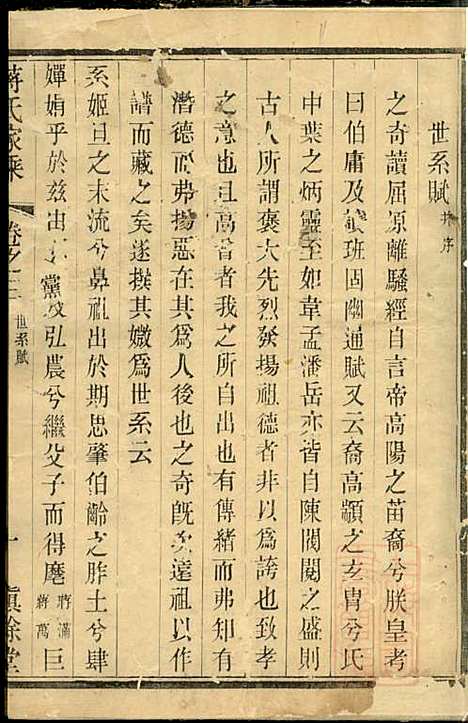 世系賦 并序
之奇讀屈原離騷經自言帝高陽之苗裔兮朕皇考
曰伯庸及班固幽通賦又云裔高顓之玄胄兮氏
中葉之炳靈至如韋孟潘岳亦皆自陳閥閱之盛則
古人所謂褒大先烈發揚祖德者非以為誇也致孝
之意也且高曾者我之所自出也有傳緒而弗知有
潛德而弗揚惡在其為人後也之奇旣次達祖以作
譜而藏之矣遂撰其媺為世系云
系姬旦之末流兮鼻祖出於期思肇伯齡之胙土兮肆
嬋娟乎於兹由黨弘農兮繼父子而得麾 蔣滿 蔣萬 巨
蔣氏家乘 卷之三 世系賦 一 慎餘堂